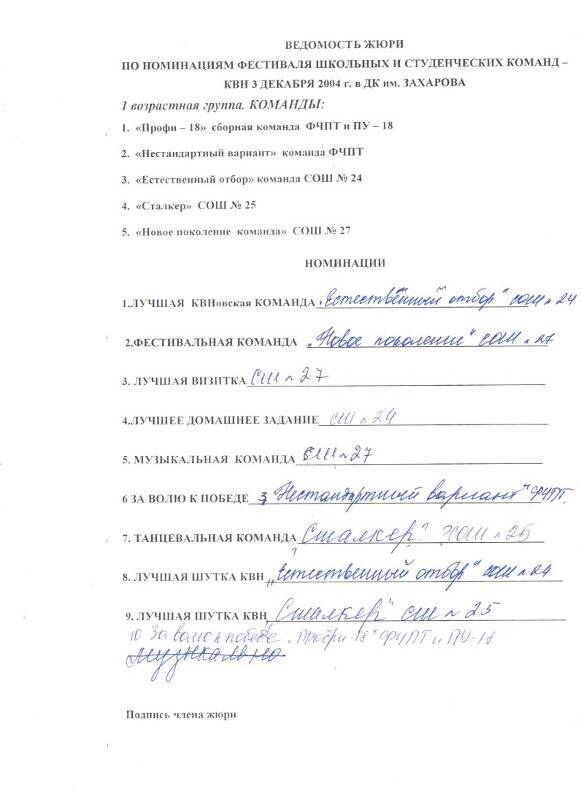 ВЕДОМОСТЬ ЖЮРИ
ПО НОМИНАЦИЯМ ФЕСТИВАЛЯ ШКОЛЬНЫХ И СТУДЕНЧЕСКИХ КОМАНД –
КВН 3 ДЕКАБРЯ 2004 г. в ДК им. ЗАХАРОВА
1 возрастная группа. КОМАНДЫ:
1. «Профи – 18» сборная команда ФЧПТ и ПУ – 18
2. «Нестандартный вариант» команда ФЧПТ
3. «Естественный отбор» команда СОШ № 24
4. «Сталкер» СОШ № 25
5. «Новое поколение команда» СОШ № 27
НОМИНАЦИИ
1.ЛУЧШАЯ КВНовская КОМАНДА „Естественный отбор" сош № 24
2.ФЕСТИВАЛЬНАЯ КОМАНДА „Новое поколение" сош № 27
3. ЛУЧШАЯ ВИЗИТКА СШ № 27
4.ЛУЧШЕЕ ДОМАШНЕЕ ЗАДАНИЕ СШ № 24
5. МУЗЫКАЛЬНАЯ КОМАНДА СШ № 27
6 ЗА ВОЛЮ К ПОБЕДЕ „Нестандартный вариант" ФЧПТ
7. ТАНЦЕВАЛЬНАЯ КОМАНДА „Сталкер" СОШ № 25
8. ЛУЧШАЯ ШУТКА КВН „Естественный отбор" сош № 24
9. ЛУЧШАЯ ШУТКА КВН „Сталкер" сш № 25
10 За волю к победе „Профи-18" ФЧПТ и ПУ-18
музыкально
Подпись члена жюри